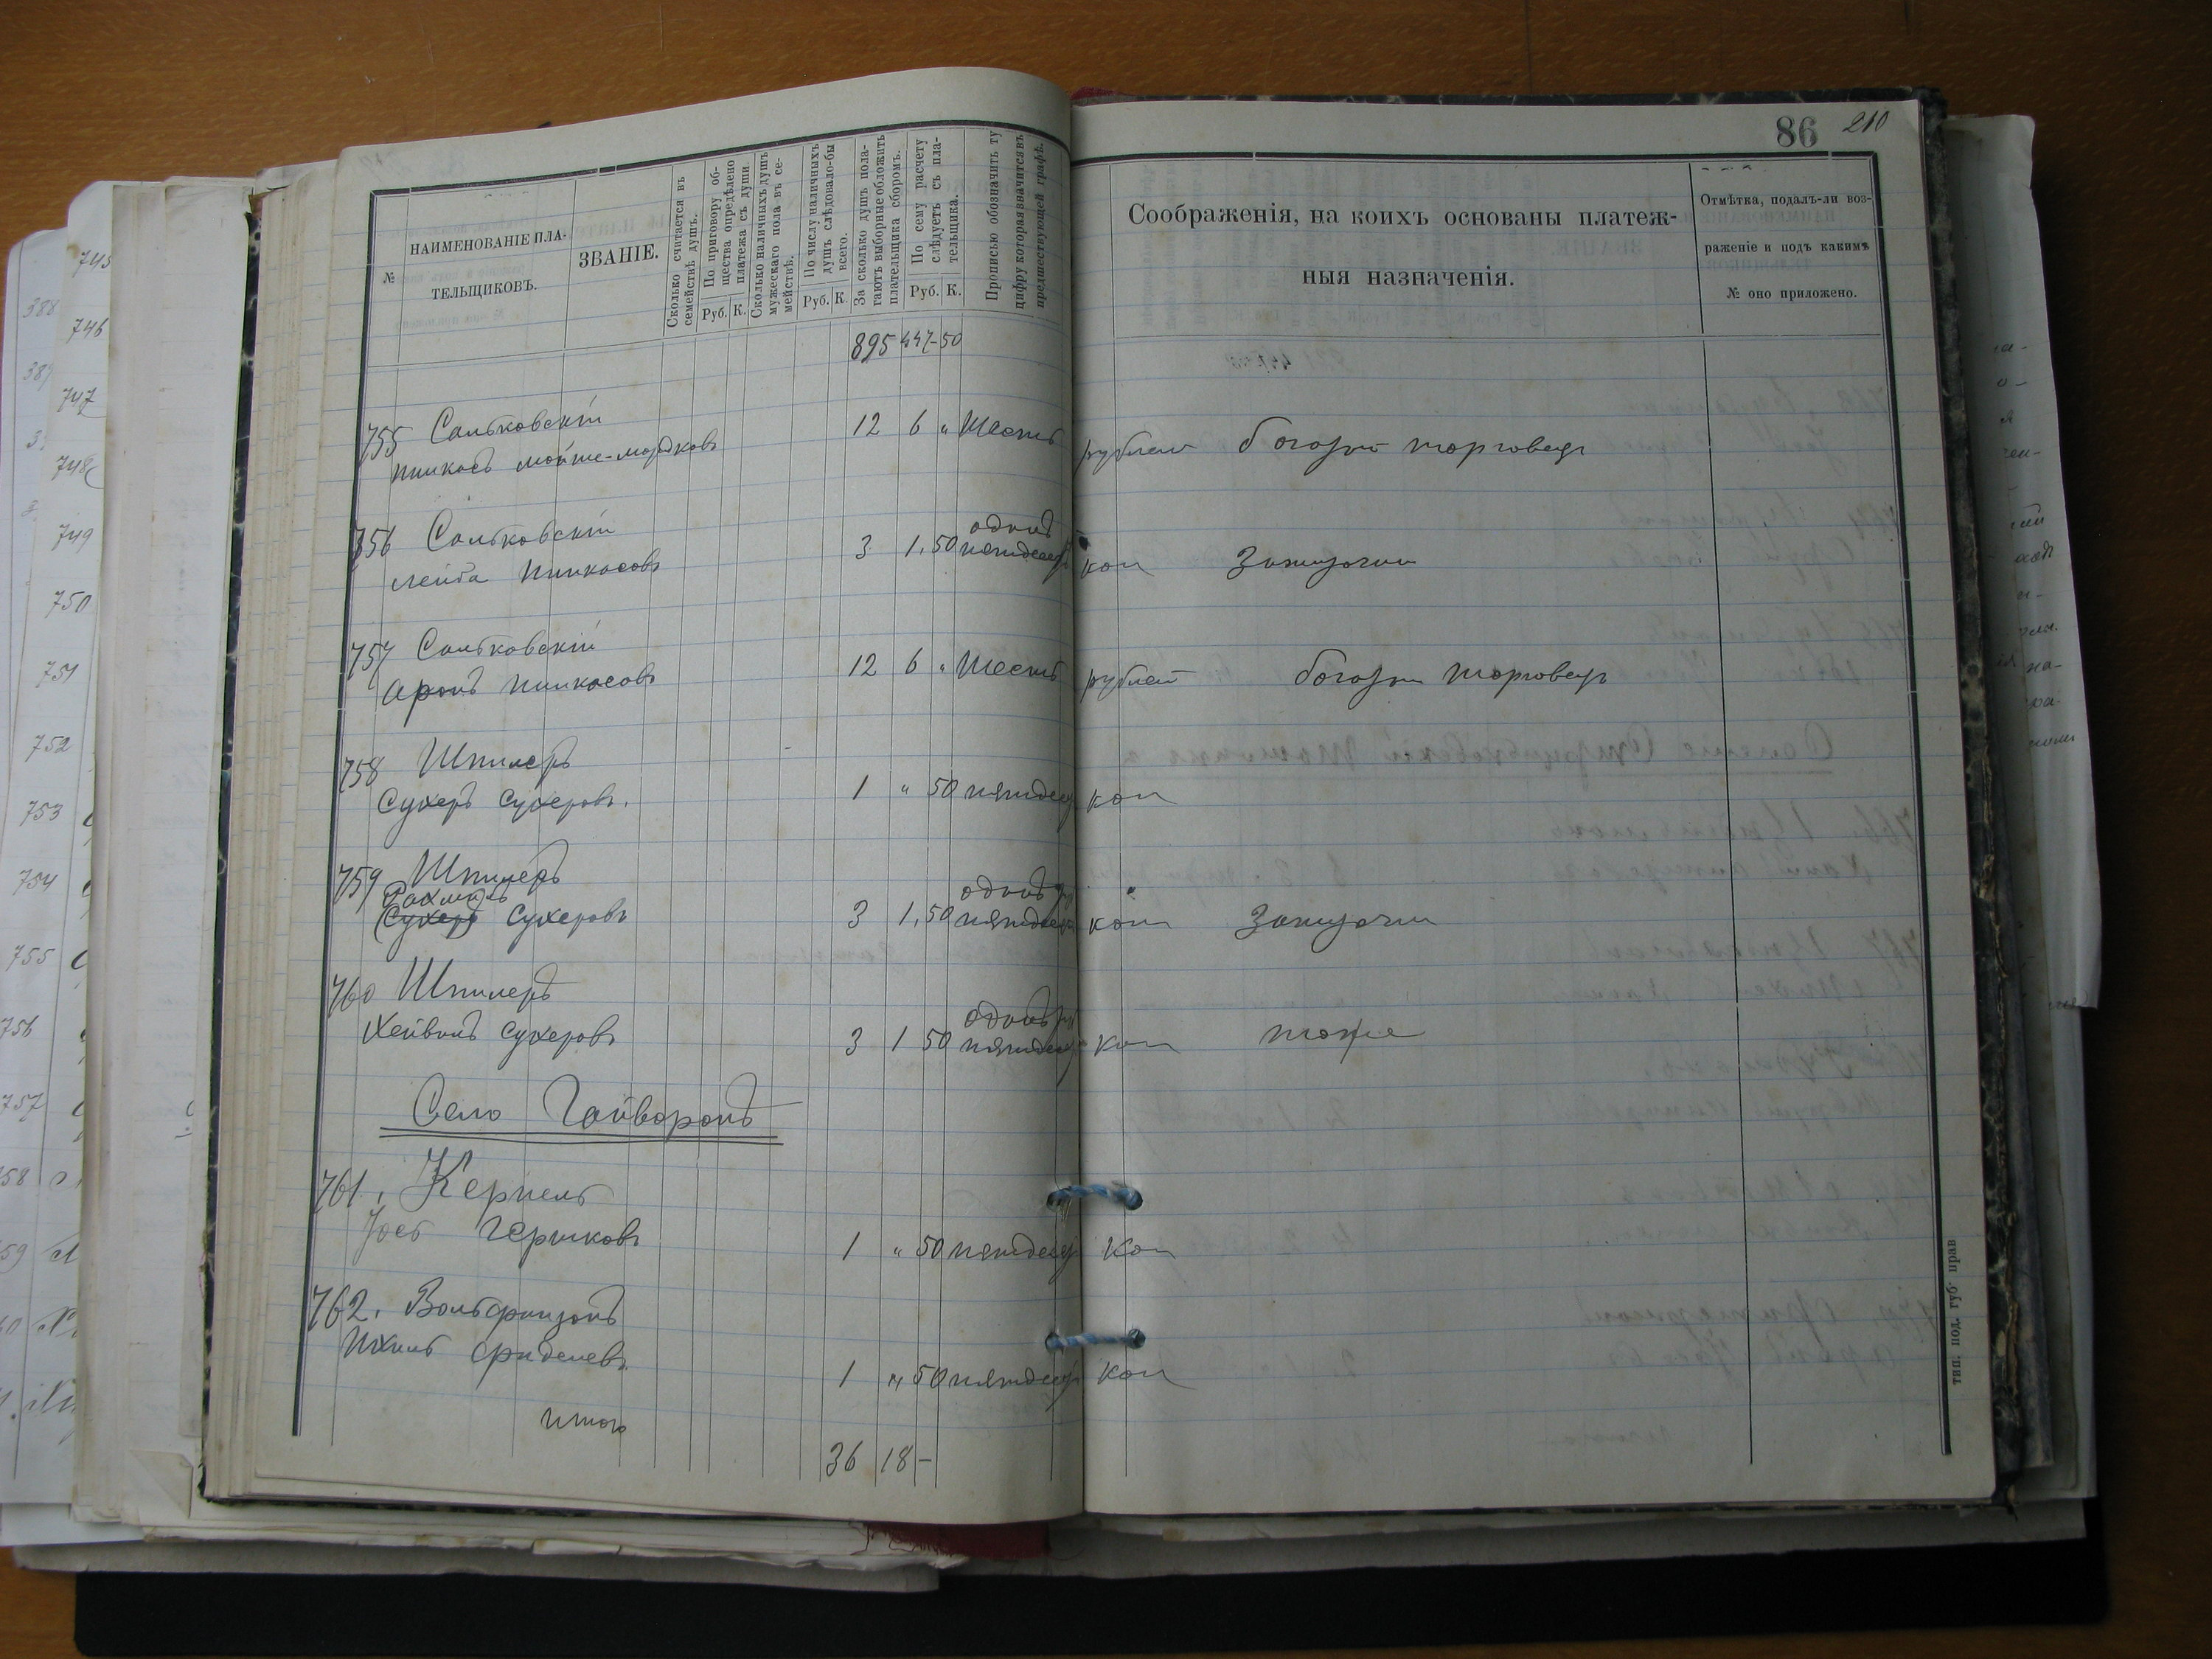 86 210
№
НАИМЕНОВАНІЕ ПЛА-
ТЕЛЬЩИКОВЪ.
ЗВАНІЕ.
Сколько считается въ
семействѣ душъ.
По приговору об-
щества опредѣлено
платежа съ души.
Руб. К.
Сколько наличныхъ душъ
мужескаго пола въ се-
мействѣ.
По числу наличныхъ
душъ слѣдовало-бы
всего.
Руб. К.
За сколько душъ пола-
гаютъ выборные обложить
плательщика сборомъ.
По сему расчету
слѣдуетъ съ пла-
тельщика.
Руб. К.
Прописью обозначить ту
цифру которая значится въ
предшествующей графѣ.
Соображенія, на коихъ основаны платеж-
ныя назначенія.
Отмѣтка, подалъ-ли воз-
раженіе и подъ какимъ
№ оно приложено.
895 447-50
755 Сальковскій
Пинкасъ Мойше-Мордковъ 12 6 „ Шесть рублей богатый торговецъ
756 Сальковскій
Лейба Пинкасовъ 3 1.50 одинъ пятьдесятъ коп Зажиточн
757 Сальковскій
Аронъ Пинкасовъ 12 6 „ Шесть рублей богатый торговецъ
758 Шпилеръ
Сухеръ Сухеровъ. 1 „ 50 пятьдесят коп
759 Шпилеръ
Рахмиль
Сухеръ Сухеровъ 3 1.50 одинъ р пятьдесят коп Зажиточн
760 Шпилеръ
Лейвикъ Сухеровъ 3 1 50 одинъ р пятьдесят коп тоже
Село Гайворонъ
761. Керпель
Іосъ Гершковъ 1 „ 50 пятьдесят Коп
762. Вольфинзонъ
Ихиль Фриделевъ 1 „ 50 пятьдесят Коп
итого
36 18 -
тип. под. губ. прав
745
746
747
748
749
750
751
752
753
754
755
756
757